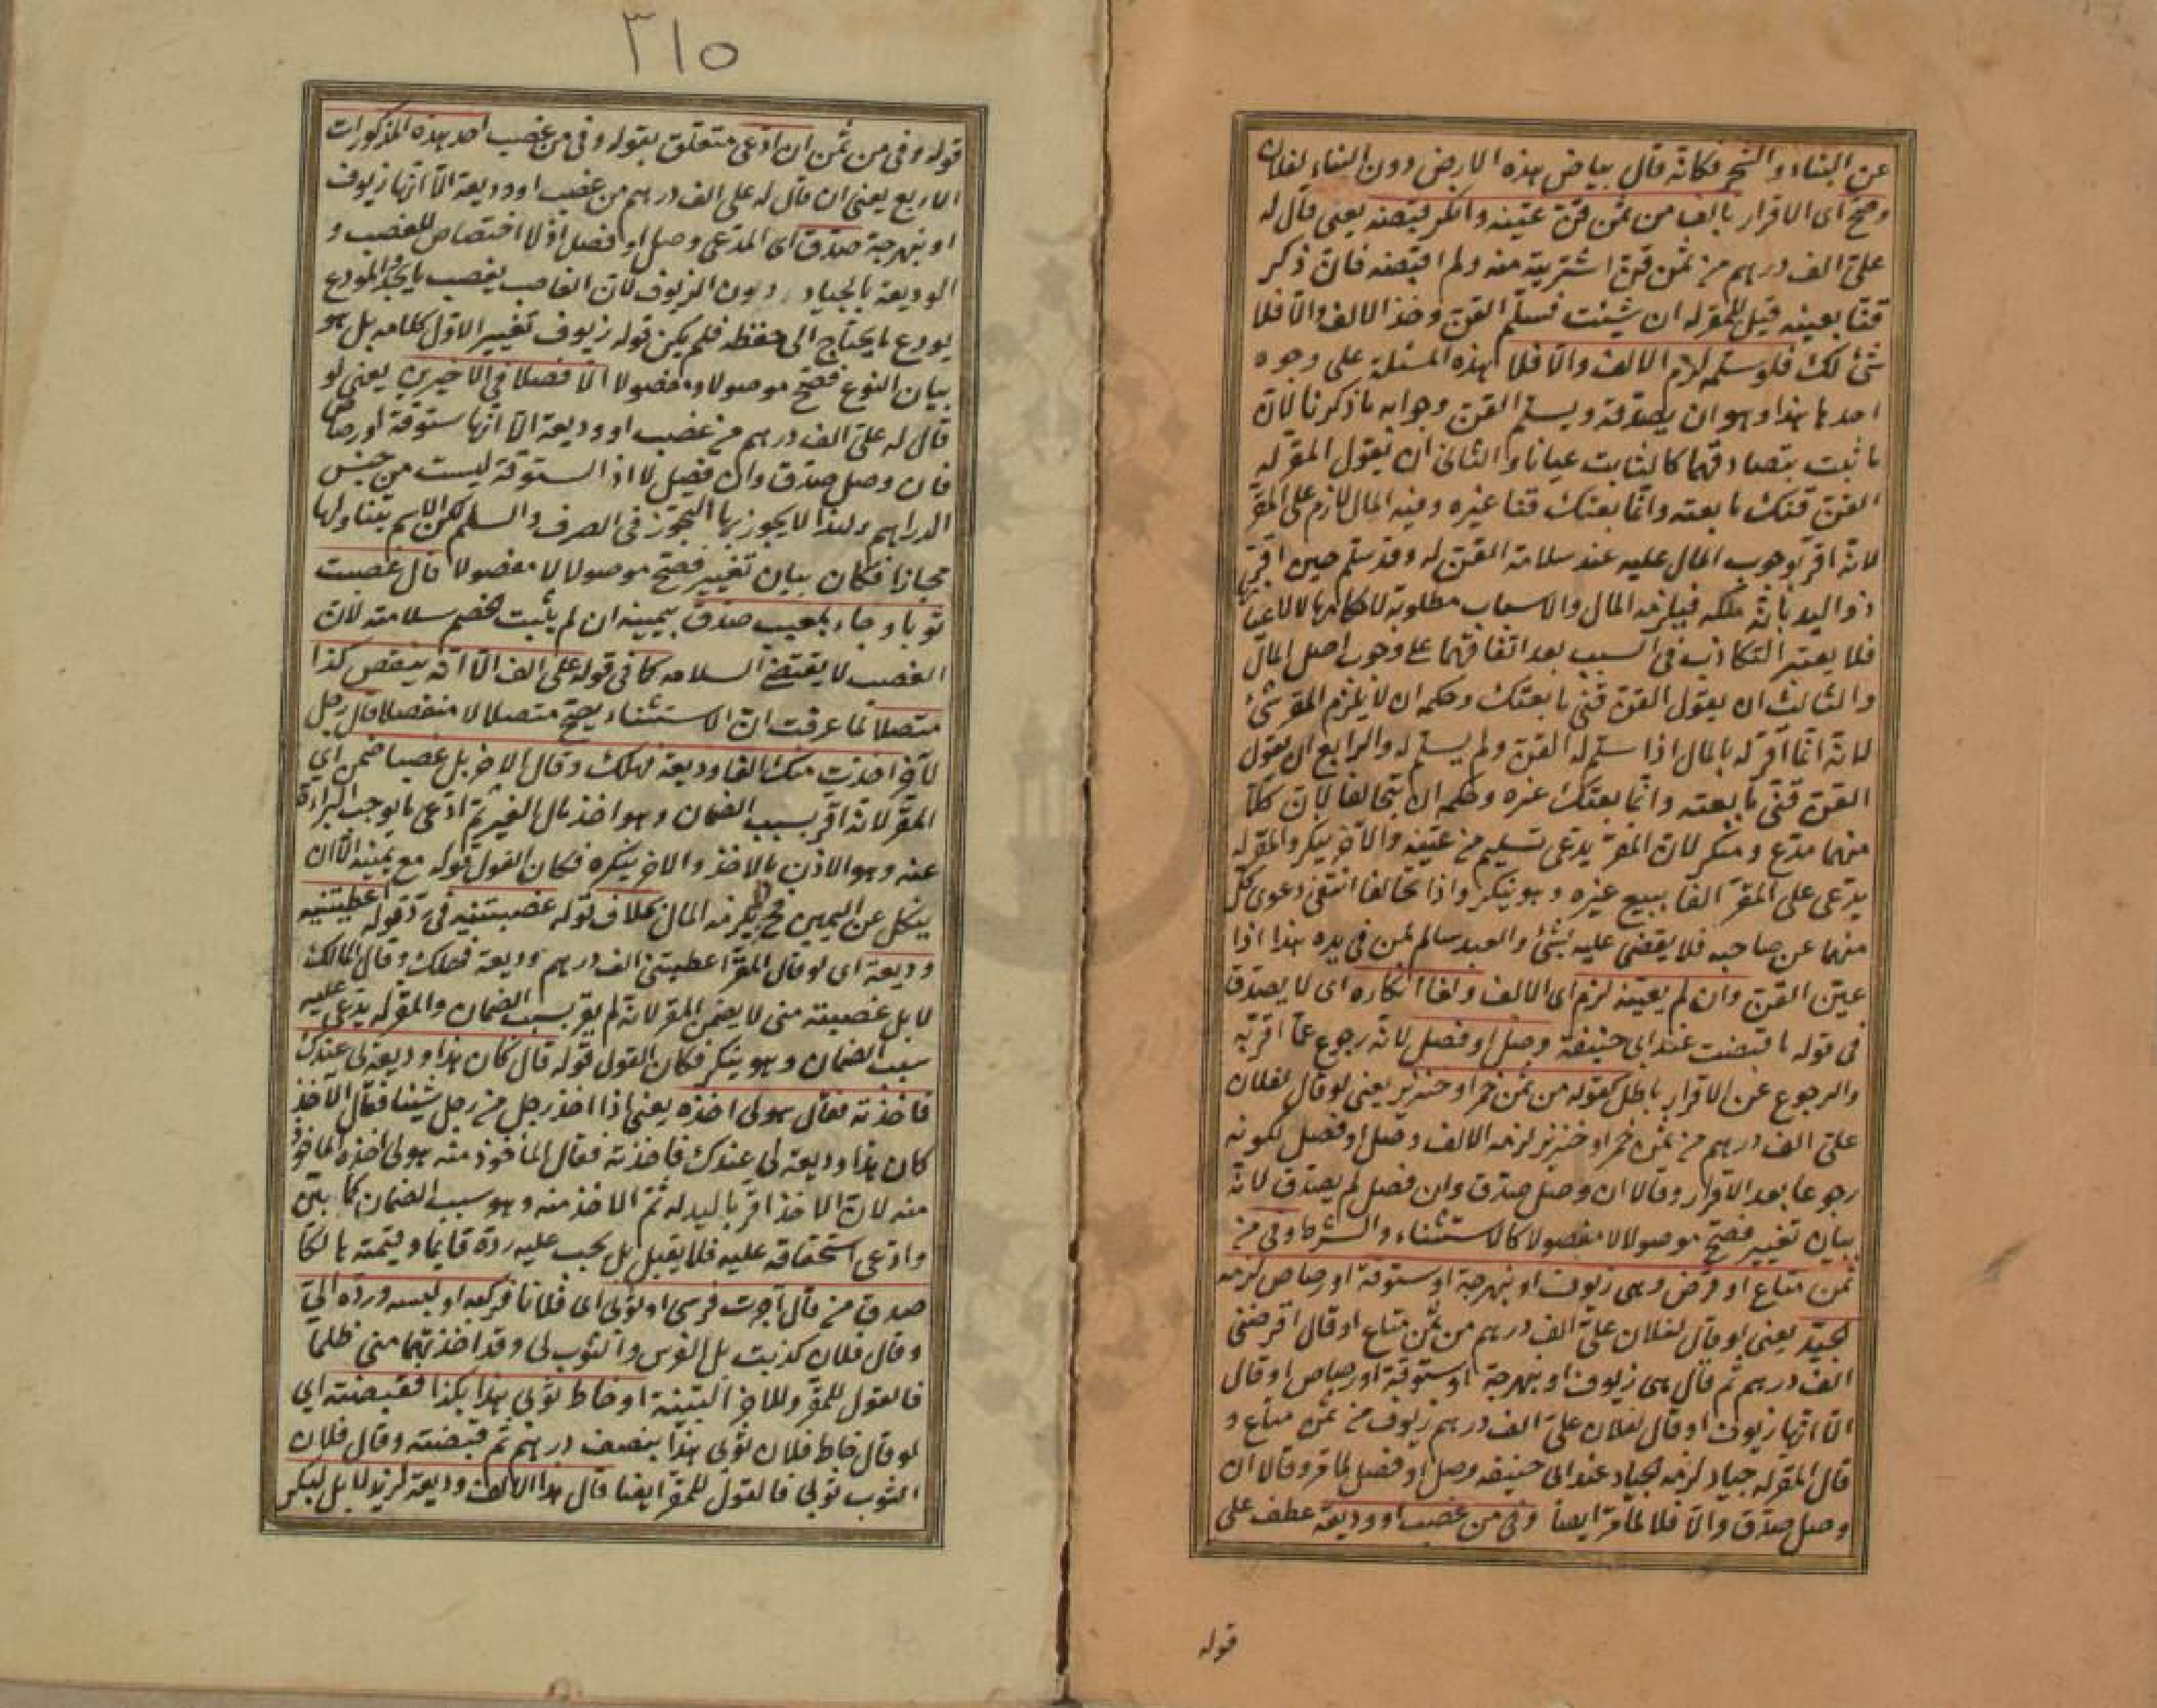 عن البناء والشجر فكانه قال بياض هذه الارض دون البناء لفلان
وصح اى الاقرار بالف من ثمن قن عينه وانكر قبضه يعنى قال له
علىّ الف درهم من ثمن قن اشتريته منه ولم اقبضه فان ذكر
قنا بعينه قيل للمقر له ان شئت فسلم القن وخذ الالف والا فلا
شئ لك فلو سلمه لزم الالف والا فلا هذه المسئلة على وجوه
احدها هذا وهو ان يصدقه ويسلم القن وجوابه ما ذكرنا لان
ما ثبت بتصادقهما كالثابت عيانا والثانى ان يقول المقر له
القن قنك ما بعته وانما بعتك قنا غيره وفيه المال لازم على المقر
لانه اقر بوجوب المال عليه عند سلامة القن له وقد سلم حين اقر
ذو اليد بانه ملكه فيلزمه المال والاسباب مطلوبة لاحكامها لا لاعيانها
فلا يعتبر التكاذب فى السبب بعد اتفاقهما على وجوب اصل المال
والثالث ان يقول القن قنى ما بعتك وحكمه ان لا يلزم المقر شئ
لانه انما اقر له بالمال اذا سلم له القن ولم يسلم له والرابع ان يقول
القن قنى ما بعته وانما بعتك غيره وحكمه ان يتحالفا لان كلا
منهما مدع ومنكر لان المقر يدعى تسليم من عينه والاخر ينكر والمقر له
يدعى على المقر الفا ببيع غيره وهو ينكر واذا تحالفا انتفى دعوى كل
منهما عن صاحبه فلا يقضى عليه بشئ والعبد سالم لمن فى يده هذا اذا
عين القن وان لم يعينه لزم اى الالف ولغا انكاره اى لا يصدق
فى قوله ما قبضت عند ابى حنيفة وصل او فصل لانه رجوع عما اقر به
والرجوع عن الاقرار باطل كقوله من ثمن خمر او خنزير يعنى لو قال لفلان
علىّ الف درهم من ثمن خمر او خنزير لزمه الالف وصل او فصل لكونه
رجوعا بعد الاقرار وقالا ان وصل صدق وان فصل لم يصدق لانه
بيان تغيير فصح موصولا لا مفصولا كالاستثناء والشرط وفى من
ثمن متاع او قرض وهى زيوف او بنهرجة او ستوقة او رصاص لزمه
الجيد يعنى لو قال لفلان علىّ الف درهم من ثمن متاع او قال اقرضنى
الف درهم ثم قال هى زيوف او بنهرجة او ستوقة او رصاص او قال
الا انها زيوف او قال لفلان علىّ الف درهم زيوف من ثمن متاع و
قال المقر له جياد لزمه الجياد عند ابى حنيفة وصل او فصل لما مر وقالا ان
وصل صدق والا فلا لما مر ايضا وفى من غصب او وديعة عطف على
قوله
٣١٥
قوله وفى من ثمن ان ادعى متعلق بقوله وفى من غصب احد هذه المذكورات
الاربع يعنى ان قال له على الف درهم من غصب او وديعة الا انها زيوف
او بنهرجة صدق اى المدعى وصل او فصل اذ لا اختصاص للغصب و
الوديعة بالجياد دون الزيوف لان الغاصب يغصب ما يجد والمودع
يودع ما يحتاج الى حفظه فلم يكن قوله زيوف تغيير الاول كلامه بل هو
بيان النوع فصح موصولا ومفصولا الا فصلا فى الاخيرين يعنى لو
قال له علىّ الف درهم من غصب او وديعة الا انها ستوقة او رصاص
فان وصل صدق وان فصل لا اذ الستوقة ليست من جنس
الدراهم ولهذا لا يجوز بها التجوز فى الصرف والسلم لكن الاسم يتناولها
مجازا فكان بيان تغيير فصح موصولا لا مفصولا قال غصبت
ثوبا وجاء بمعيب صدق بيمينه ان لم يثبت خصم سلامته لان
الغصب لا يقتضى السلامه كما فى قوله على الف الا انه ينقص كذا
متصلا لما عرفت ان الاستثناء يصح متصلا لا منفصلا قال رجل
لآخر اخذت منك الفا وديعة فهلك وقال الاخر بل غصبا ضمن اى
المقر لانه اقر بسبب الضمان وهو اخذ مال الغير ثم ادعى ما يوجب البراءة
عنه وهو الاذن بالاخذ والاخر ينكره فكان القول قوله مع يمينه الا ان
ينكل عن اليمين فح لا يلزمه المال بخلاف قوله غصبتنيه فى رد قوله اعطيتنيه
وديعة اى لو قال المقر اعطيتنى الف درهم وديعة فهلك وقال المالك
لا بل غصبته منى لا يضمن المقر لانه لم يقر بسبب الضمان والمقر له يدعى عليه
سبب الضمان وهو ينكر فكان القول قوله قال كان هذا وديعة لى عندك
فاخذته فقال هو لى اخذه يعنى اذا اخذ رجل من رجل شيئا فقال الاخذ
كان هذا وديعة لى عندك فاخذته فقال الماخوذ منه هو لى اخذه الماخوذ
منه لان الاخذ اقر باليد له ثم الاخذ منه وهو سبب الضمان كما بين
وادعى استحقاقه عليه فلا يقبل بل يجب عليه رده قايما وقيمته هالكا
صدق من قال آجرت فرسى او ثوبى اى فلانا فركبه او لبسه ورده الىّ
وقال فلان كذبت بل الفرس والثوب لى وقد اخذتهما منى ظلما
فالقول للمقر وللاخر البينة او خاط ثوبى هذا بكذا فقبضته اى
لو قال خاط فلان ثوبى هذا بنصف درهم ثم قبضته وقال فلان
الثوب ثوبى فالقول للمقر ايضا قال هذا الالف وديعة لزيد لا بل لبكر